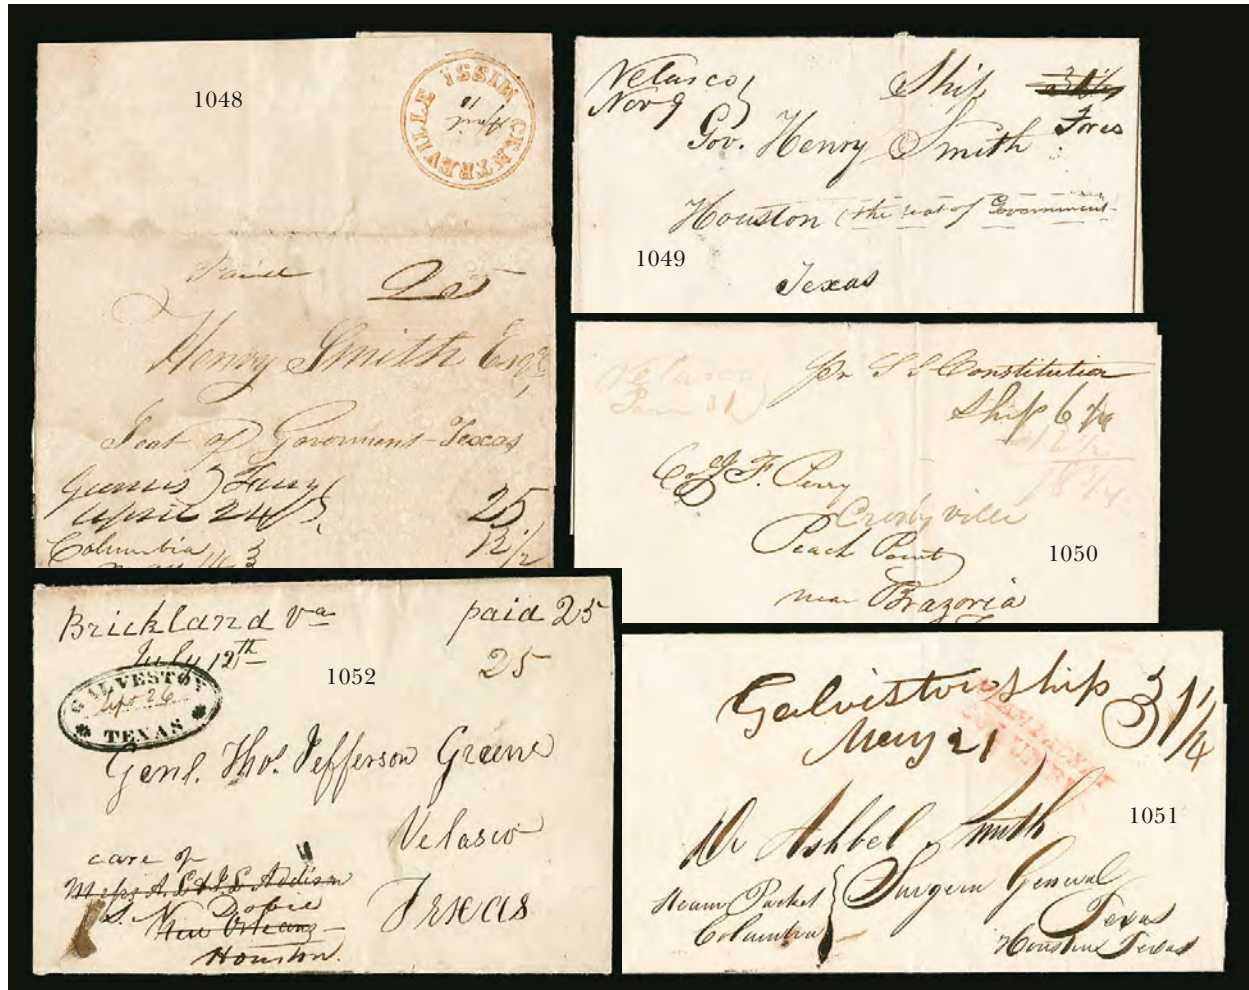 1048
CENTREVILLE MISSI
April
10
Paid
25
Henry Smith Esqr
Seat of Government Texas
April 24
25
Columbia
12 1/2
Velasco
Nov 9
Ship
Fores
Gov. Henry Smith
Houston (the seat of Government
1049
Texas
Velasco
Jan 31
pr S S Constitution
Ship 6 1/4
12 1/2
18 3/4
J. F. Perry
Crosbyville
Peach Point
1050
near Brazoria
Brickland Va
July 12th
paid 25
25
1052
GALVESTON
Sept 26
TEXAS
Genl. Thos. Jefferson Green
Velasco
Texas
care of
Messrs A. & J. E. Addison
S. N. Dobie
New Orleans
Houston.
Galviston ship 31 1/4
May 21
1051
Dr Ashbel Smith
Surgeon General
Steam Packet
Columbia
Texas
Houston Texas